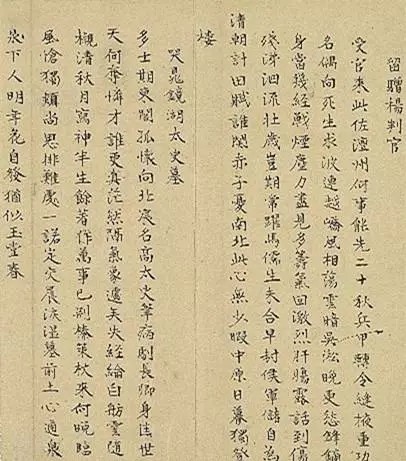 留贈楊判官
受官来此佐澶州何事能先二十秋兵甲驟令縫掖重功
名偶向死生求波連越嶠風相蕩雲暗吳淞晚更愁鋒鏑
身當幾經戰煙塵力盡見多籌氣回激烈肝腸露話到傷
殘涕泗流壯歲豈期常躍馬儒生未合早封侯軍儲自為
清朝計田賦誰閔赤子憂南北此心無少暇中原日暮獨登
樓
哭晁鏡湖太史墓
多士期東閣孤懷向北宸名高太史筆病劇長卿身世
天何奪憐才誰更真茫然隔氣象遽矣失經綸白舫雲隨
櫬清秋月寫神半生餘著作萬事已荆榛策杖来何晚臨
風愴獨頻尚思排難處一諾定交晨淚溼墓前土心通泉
下人明年花自發猶似玉堂春